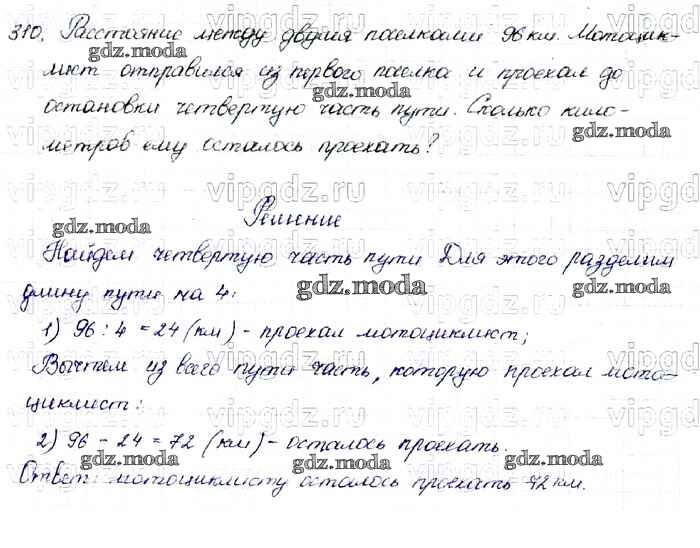 310. Расстояние между двумя поселками 96 км. Мотоцик-
лист отправился из первого поселка и проехал до
остановки четвертую часть пути. Сколько кило-
метров ему осталось проехать?
Решение
Найдем четвертую часть пути Для этого разделим
длину пути на 4:
1) 96 : 4 = 24 (км) - проехал мотоциклист;
Вычтем из всего пути часть, которую проехал мото-
циклист:
2) 96 - 24 = 72 (км) - осталось проехать.
Ответ: мотоциклисту осталось проехать 72 км.
gdz.moda
vipgdz.ru